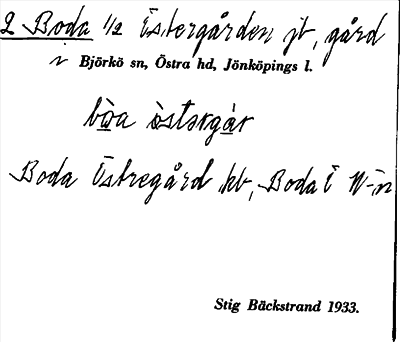 2 Boda 1/2 Östergården jb, gård
i Björkö sn, Östra hd, Jönköpings l.
bo̱a östərga̱r
Boda Östregård kb, Boda Ö N-in
Stig Bäckstrand 1933.